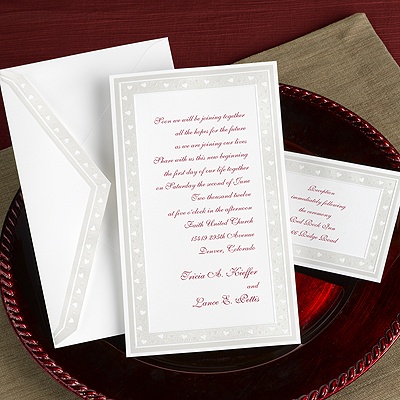 Soon we will be joining together
all the hopes for the future
as we are joining our lives
Share with us this new beginning
the first day of our life together
on Saturday the second of June
Two thousand twelve
at five o'clock in the afternoon
Faith United Church
15419 295th Avenue
Denver, Colorado
Tricia A. Kieffer
and
Lance E. Pettis
Reception
immediately following
the ceremony
Red Rock Inn
Ridge Road